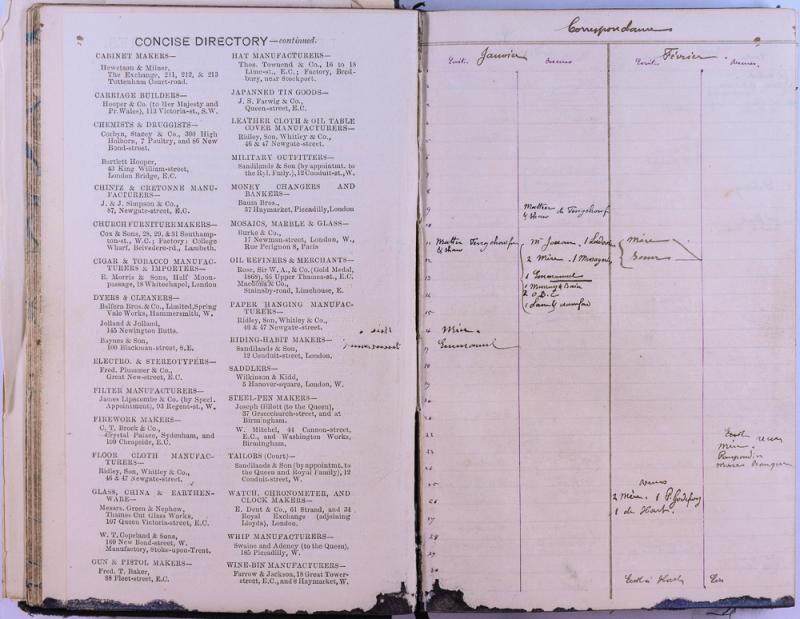 CONCISE DIRECTORY—continued.
CABINET MAKERS—
Hewetson & Milner,
The Exchange, 211, 212, & 213
Tottenham Court-road.
CARRIAGE BUILDERS—
Hooper & Co. (to Her Majesty and
Pr. Wales), 113 Victoria-st., S.W.
CHEMISTS & DRUGGISTS—
Corbyn, Stacey & Co., 300 High
Holborn, 7 Poultry, and 86 New
Bond-street.
Bartlett Hooper,
43 King William-street,
London Bridge, E.C.
CHINTZ & CRETONNE MANU-
FACTURERS—
J. & J. Simpson & Co.,
87, Newgate-street, E.C.
CHURCH FURNITURE MAKERS—
Cox & Sons, 28, 29, & 31 Southamp-
ton-st., W.C.; Factory: College
Wharf, Belvedere-rd., Lambeth.
CIGAR & TOBACCO MANUFAC-
TURERS & IMPORTERS—
E. Morris & Sons, Half Moon-
passage, 18 Whitechapel, London
DYERS & CLEANERS—
Balfern Bros. & Co., Limited, Spring
Vale Works, Hammersmith, W.
Jolland & Jolland,
145 Newington Butts.
Baynes & Son,
100 Blackman-street, S.E.
ELECTRO. & STEREOTYPERS—
Fred. Plummer & Co.,
Great New-street, E.C.
FILTER MANUFACTURERS—
James Lipscombe & Co. (by Specl.
Appointment), 93 Regent-st., W.
FIREWORK MAKERS—
C. T. Brock & Co.,
Crystal Palace, Sydenham, and
109 Cheapside, E.C.
FLOOR CLOTH MANUFAC-
TURERS—
Ridley, Son, Whitley & Co.,
46 & 47 Newgate-street.
GLASS, CHINA & EARTHEN-
WARE—
Messrs. Green & Nephew,
Thames Cut Glass Works,
107 Queen Victoria-street, E.C.
W. T. Copeland & Sons,
160 New Bond-street, W.
Manufactory, Stoke-upon-Trent.
GUN & PISTOL MAKERS—
Fred. T. Baker,
88 Fleet-street, E.C.
HAT MANUFACTURERS—
Thos. Townend & Co., 16 to 18
Lime-st., E.C.; Factory, Bred-
bury, near Stockport.
JAPANNED TIN GOODS—
J. S. Farwig & Co.,
Queen-street, E.C.
LEATHER CLOTH & OIL TABLE
COVER MANUFACTURERS—
Ridley, Son, Whitley & Co.,
46 & 47 Newgate-street.
MILITARY OUTFITTERS—
Sandilands & Son (by appointmt. to
the Ryl. Famly.), 12 Conduit-st., W.
MONEY CHANGERS AND
BANKERS—
Baum Bros.,
37 Haymarket, Piccadilly, London
MOSAICS, MARBLE & GLASS—
Burke & Co.,
17 Newman-street, London, W.,
Rue Perignon 8, Paris
OIL REFINERS & MERCHANTS—
Rose, Sir W. A., & Co. (Gold Medal,
1868), 66 Upper Thames-st., E.C.
Stainsby-road, Limehouse, E.
PAPER HANGING MANUFAC-
TURERS—
Ridley, Son, Whitley & Co.,
46 & 47 Newgate-street.
RIDING-HABIT MAKERS—
Sandilands & Son,
12 Conduit-street, London.
SADDLERS—
Wilkinson & Kidd,
5 Hanover-square, London, W.
STEEL-PEN MAKERS—
Joseph Gillott (to the Queen),
37 Gracechurch-street, and at
Birmingham.
W. Mitchel, 44 Cannon-street,
E.C., and Washington Works,
Birmingham.
TAILORS (Court)—
Sandilands & Son (by appointmt. to
the Queen and Royal Family), 12
Conduit-street, W.
WATCH, CHRONOMETER, AND
CLOCK MAKERS—
E. Dent & Co., 61 Strand, and 34
Royal Exchange (adjoining
Lloyds), London.
WHIP MANUFACTURERS—
Swaine and Adeney (to the Queen),
185 Piccadilly, W.
WINE-BIN MANUFACTURERS—
Farrow & Jackson, 18 Great Tower-
street, E.C., and 8 Haymarket, W.
Correspondance
Janvier
Février
Mère
2 Mère
Soeur
1 Emmanuel
2 O.D.C
Mère
Emmanuel
2 Mère. 1 P. Godefroy